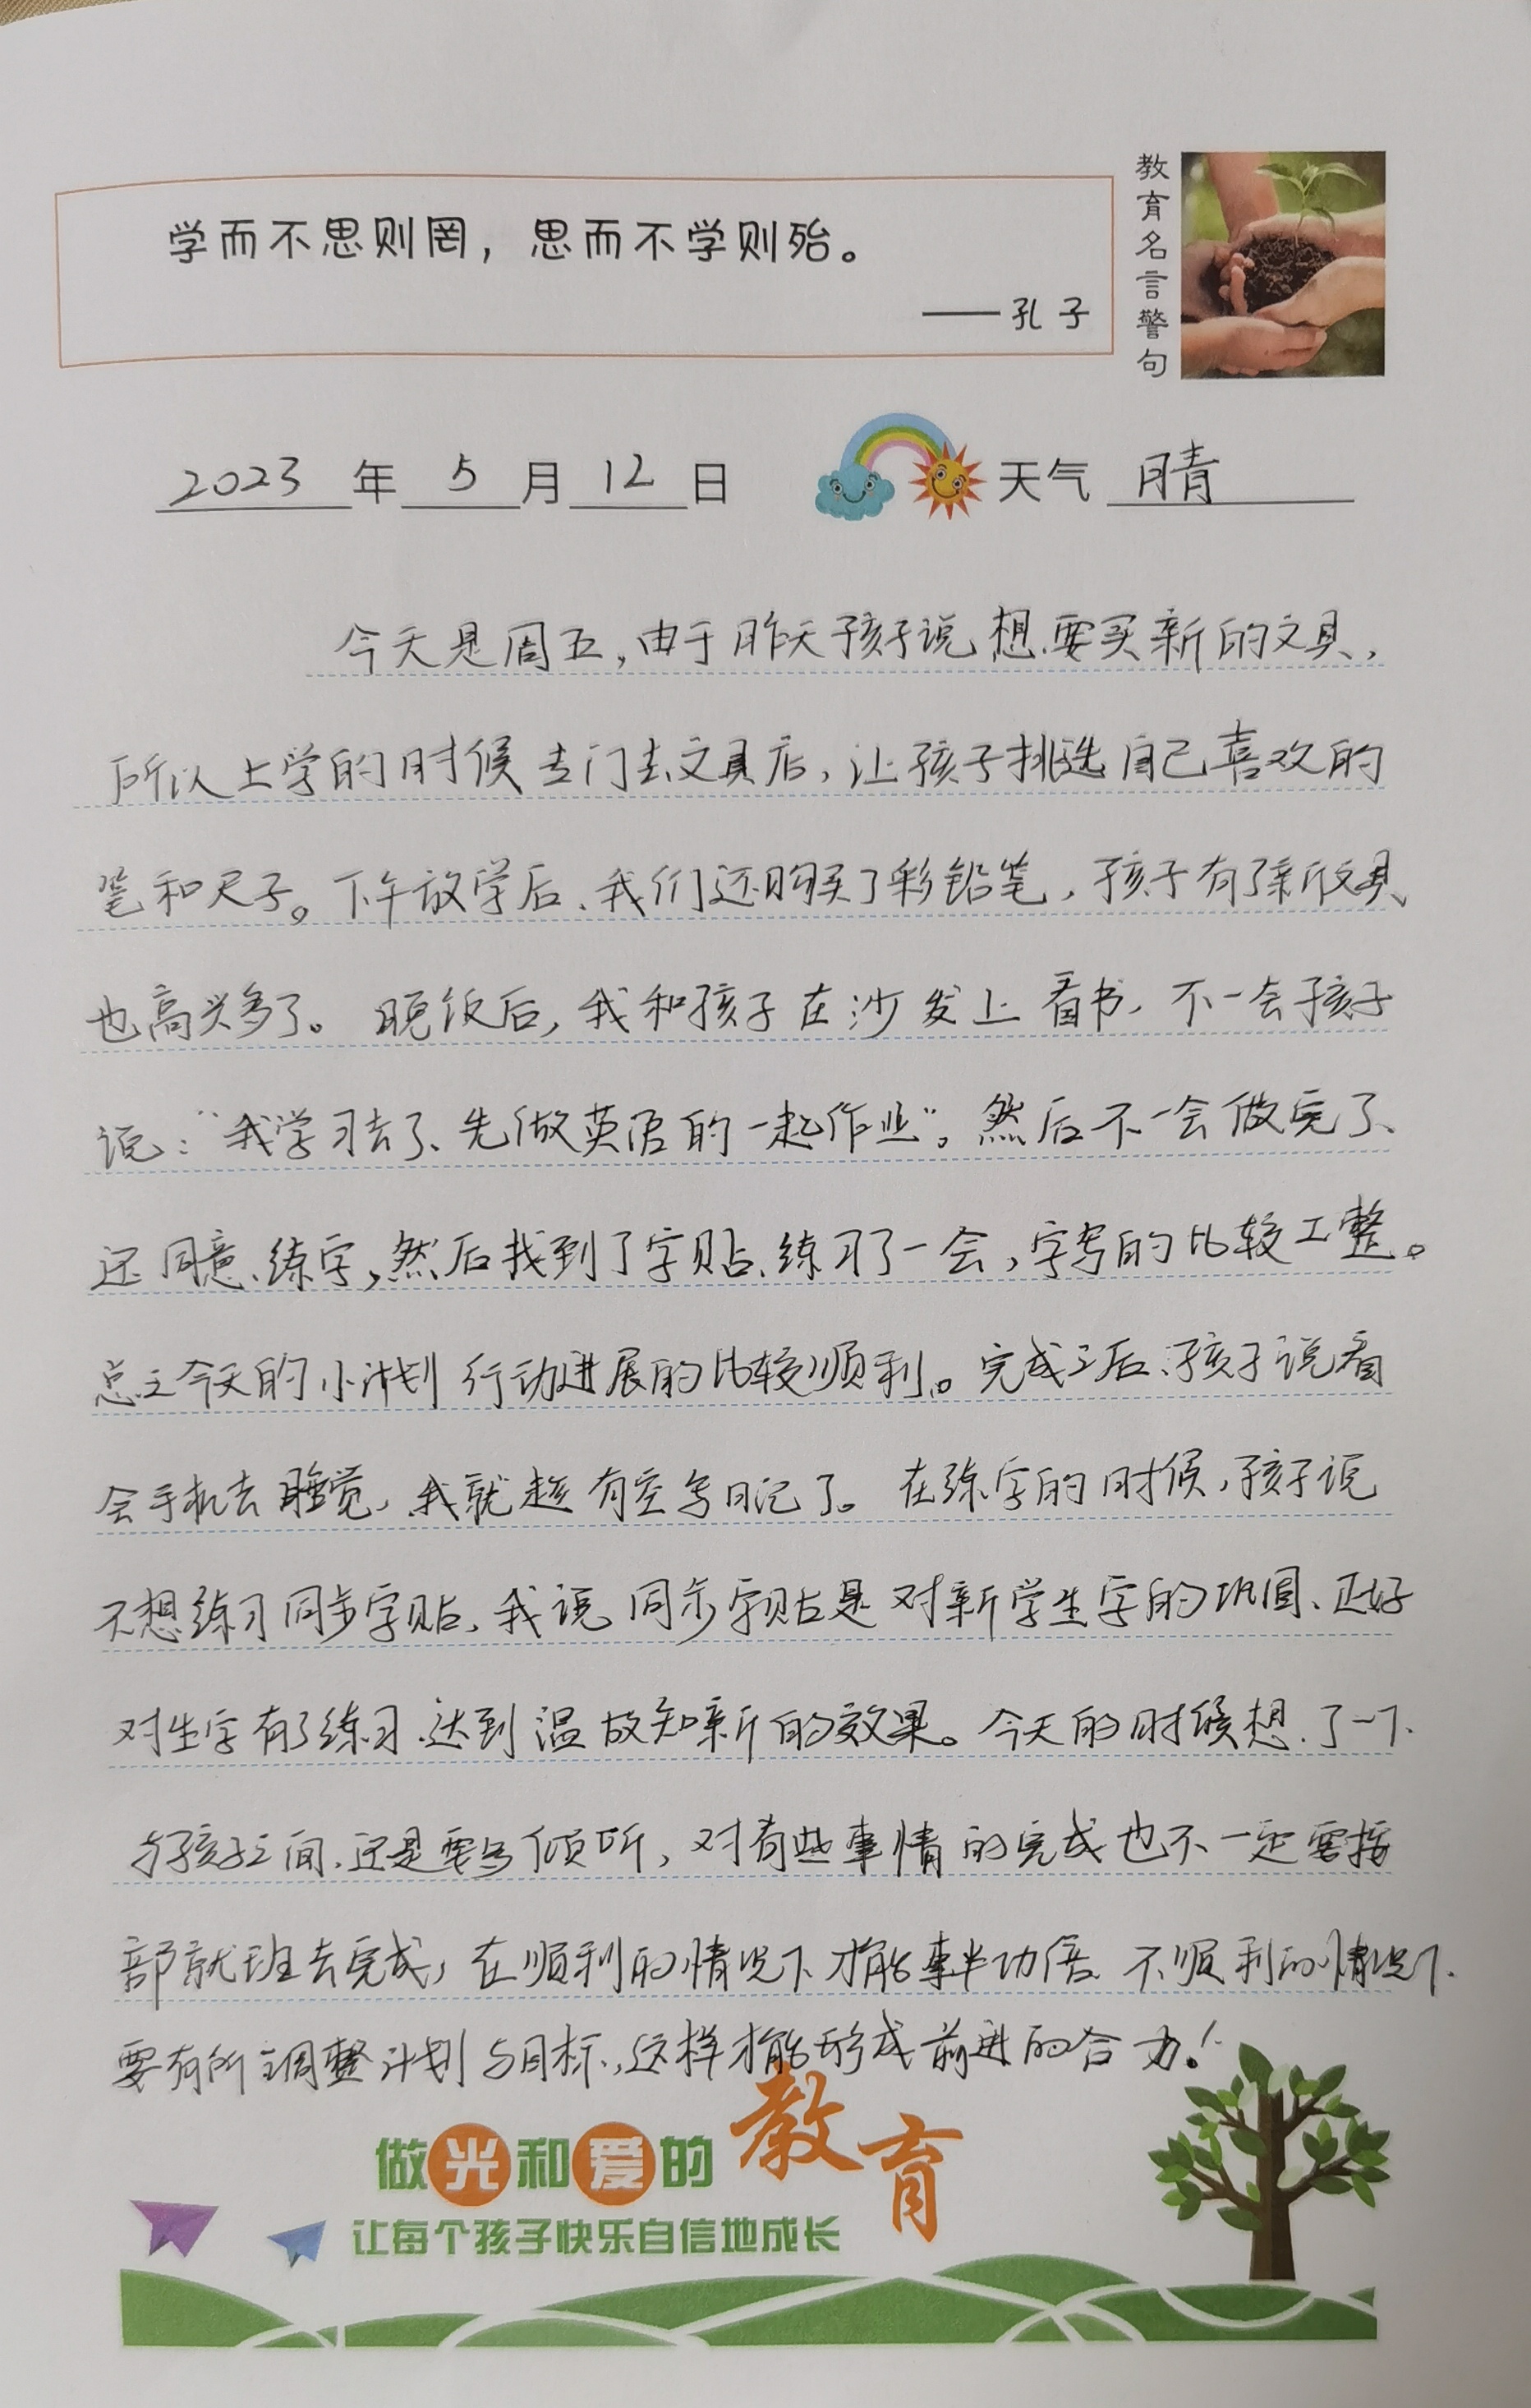 学而不思则罔，思而不学则殆。
——孔子
教育名言警句
2023年5月12日 天气 晴
今天是周五，由于昨天孩子说想要买新的文具，
所以上学的时候去门去文具店，让孩子挑选自己喜欢的
笔和尺子。下午放学后、我们还购买了彩铅笔，孩子有了新文具、
也高兴多了。晚饭后，我和孩子在沙发上看书、不一会孩子
说：“我学习去了、先做英语的一起作业”。然后不一会做完了、
还同意、练字，然后找到了字贴、练习了一会，字写的比较工整。
总之今天的小计划行动进展的比较顺利。完成之后、孩子说看
会手机去睡觉，我就趁有空写日记了。在练字的时候，孩子说
不想练习同步字贴、我说同步字贴是对新学生字的巩固、正好
对生字有了练习、达到温故知新的效果。今天的时候想了一下、
与孩子之间、还是要多倾听，对有些事情的完成也不一定要按
部就班去完成，在顺利的情况下才能事半功倍、不顺利的情况下、
要有所调整计划与目标、这样才能形成前进的合力！
做光和爱的教育
让每个孩子快乐自信地成长